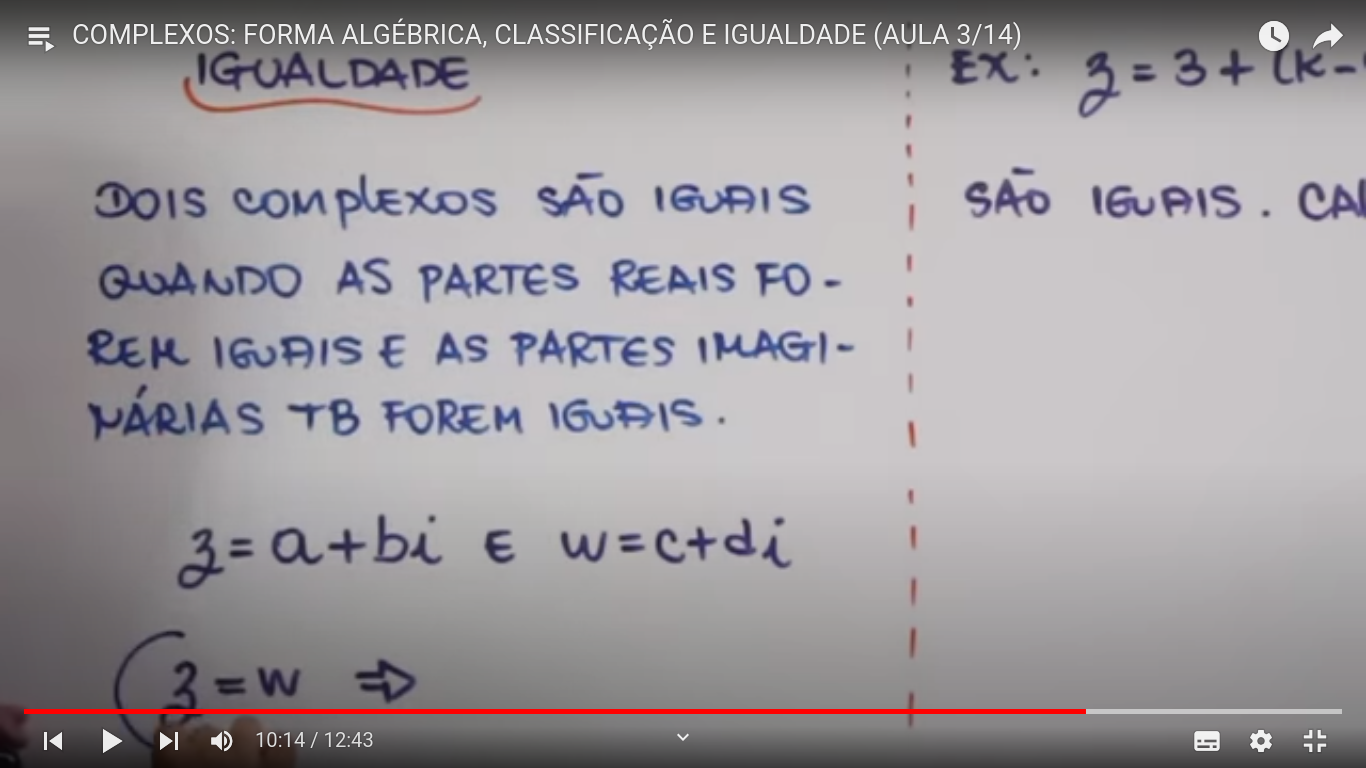 COMPLEXOS: FORMA ALGÉBRICA, CLASSIFICAÇÃO E IGUALDADE (AULA 3/14)
IGUALDADE
DOIS COMPLEXOS SÃO IGUAIS
QUANDO AS PARTES REAIS FO-
REM IGUAIS E AS PARTES IMAGI-
NÁRIAS TB FOREM IGUAIS.
z = a + bi E w = c + di
z = w ⇒
EX: z = 3 + (K -
SÃO IGUAIS. CAL
10:14 / 12:43